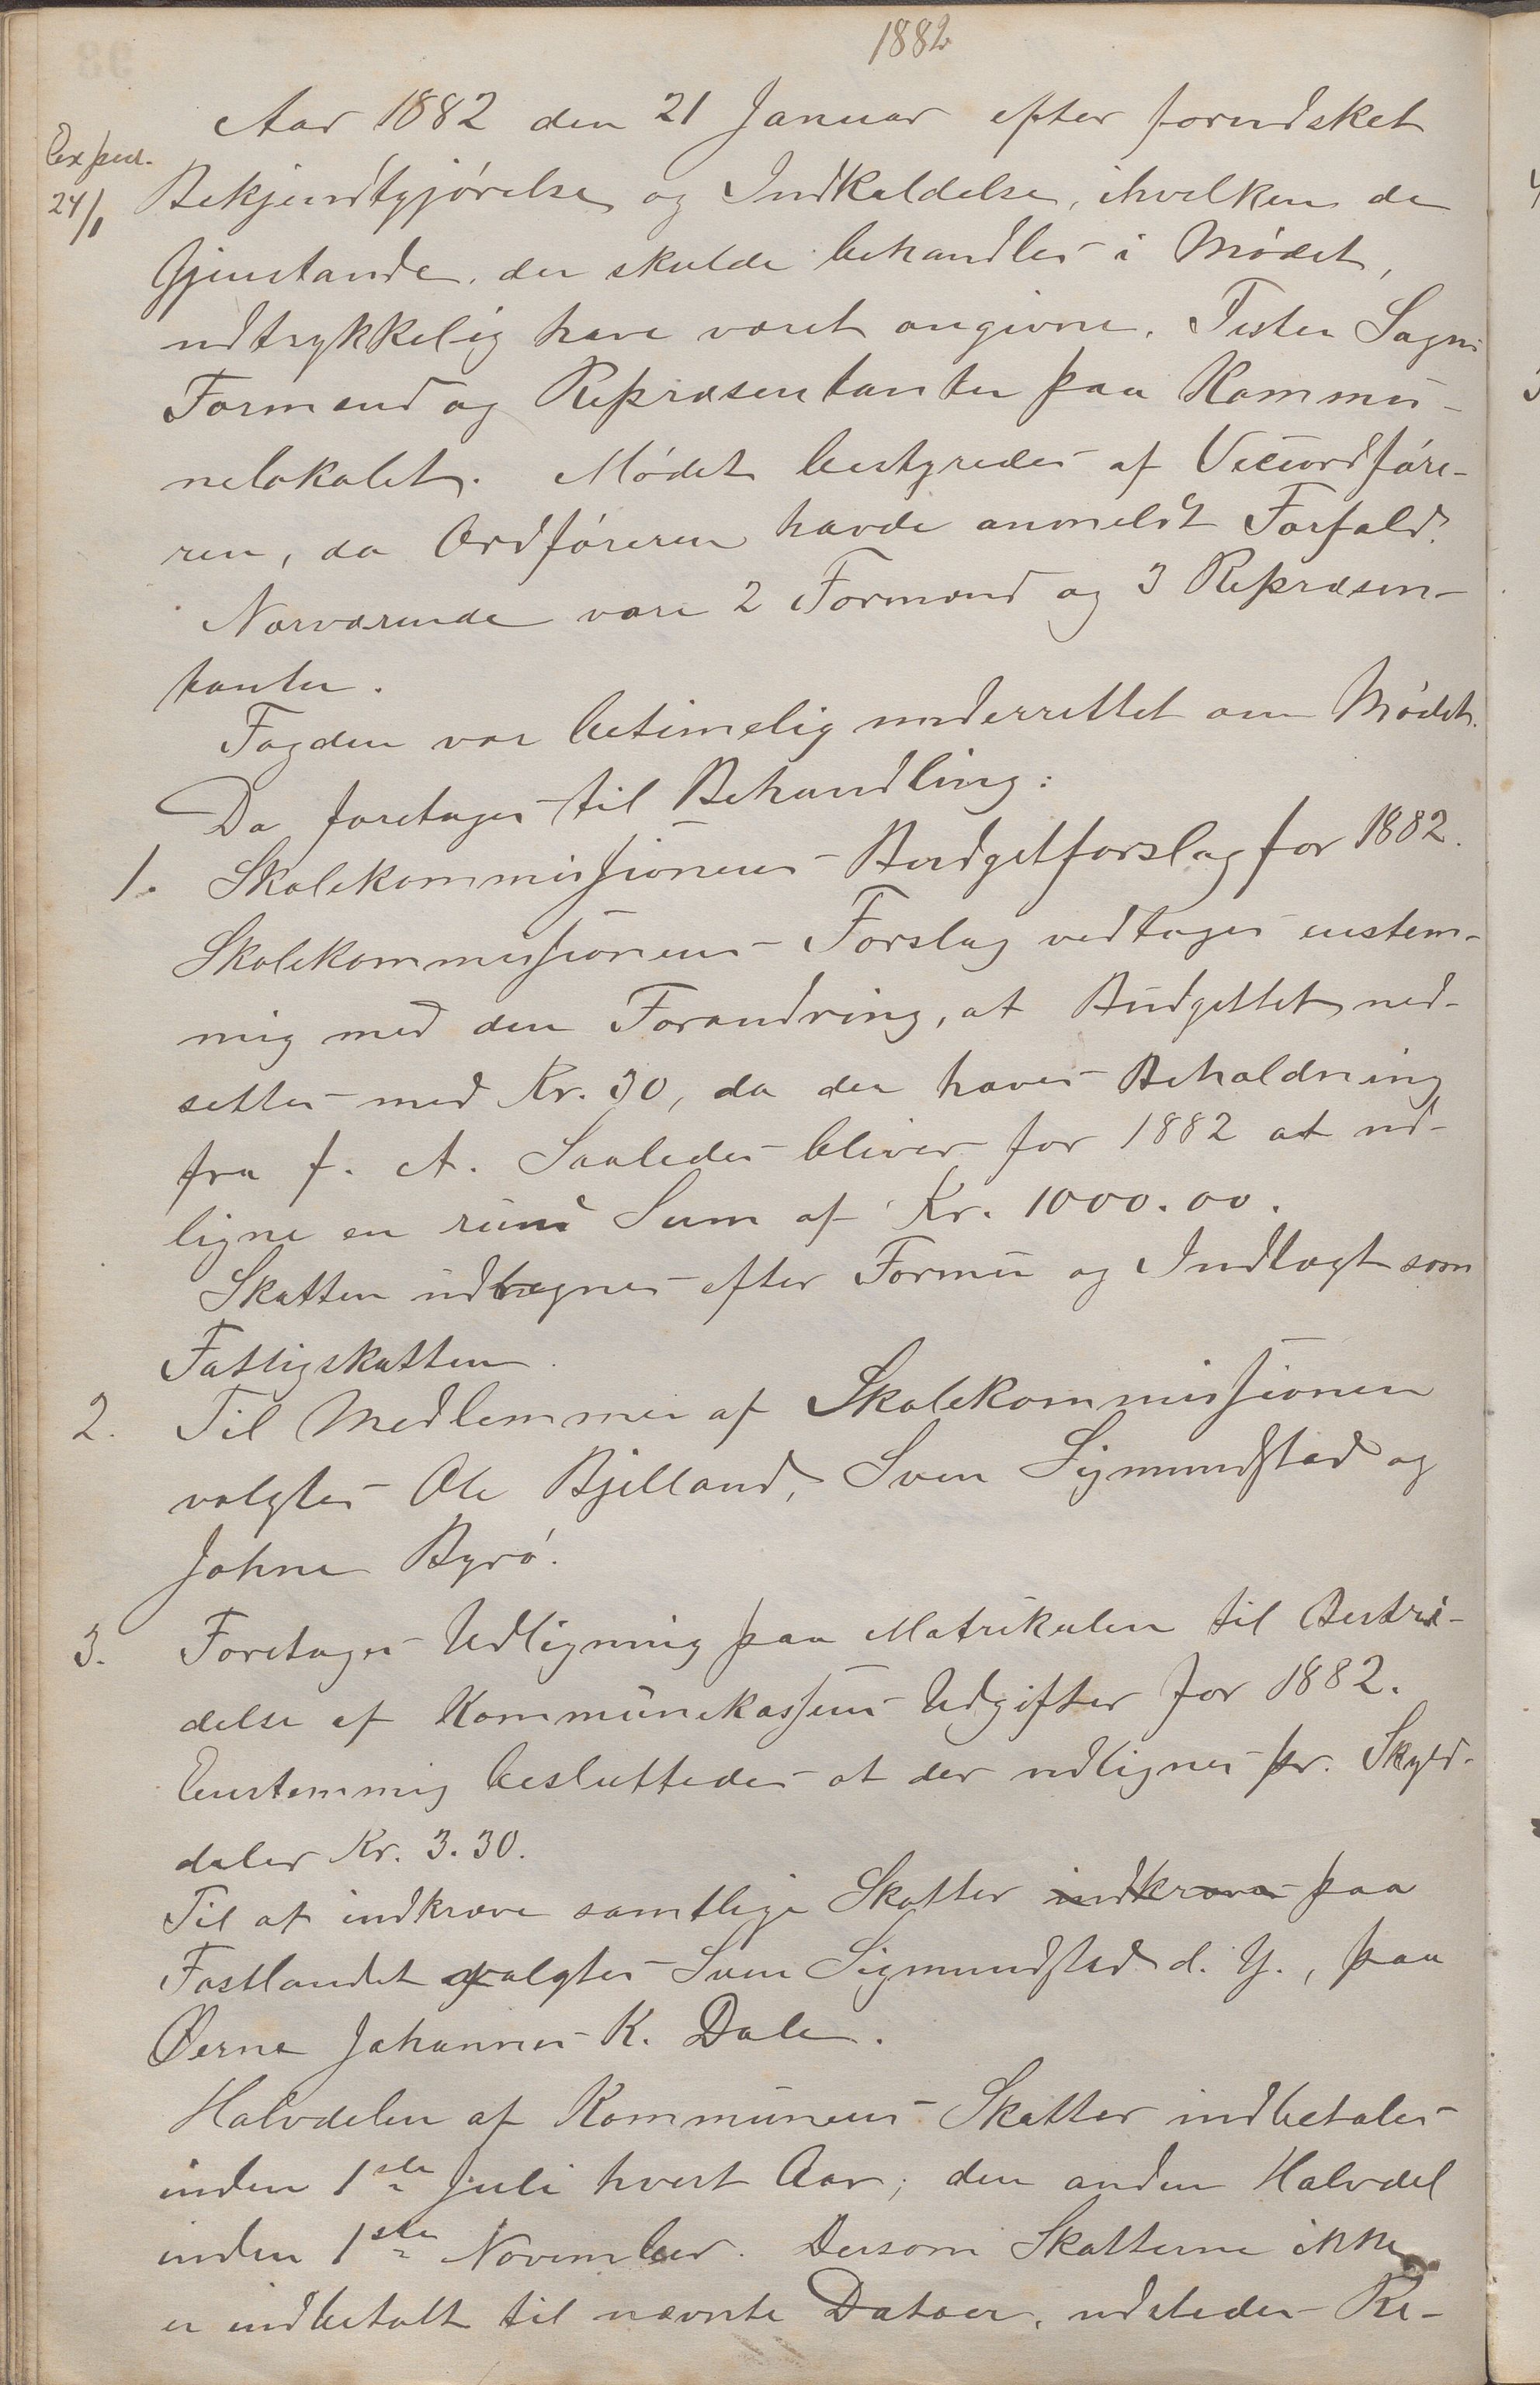 1882
Aar 1882 den 21 Januar efter forudsket
Exped.
24/1
Bekjendtgjørelse og Indkaldelse, ihvilken de
Gjenstande, der skulde behandles i Mødet,
udtrykkelig have været angivne. Fister Sogns
Formænd og Repræsentanter paa Kommu-
nelokalet. Mødet bestyredes af Viceordføre-
ren, da Ordføreren havde anmeldt Forfald.
Nærværende vare 2 Formænd og 3 Repræsen-
tanter.
Fogden var betimelig underrettet om Mødet.
Da foretoges til Behandling:
1. Skolekommissionens Budgetforslag for 1882.
Skolekommissionens Forslag vedtages enstem-
mig med den Forandring, at Budgettet ned-
settes med Kr. 30, da der haves Beholdning
fra f. A. Saaledes bliver for 1882 at ud-
ligne en rund Sum af Kr. 1000.00.
Skatten udlignes efter Formue og Indtægt som
Fattigskatten.
2. Til Medlemmer af Skolekommissionen
valgtes Ole Bjelland, Sven Sigmundstad og
Johne Byrø.
3. Foretages Udligning paa Matrikulen til Bestri-
delse af Kommunekassens Udgifter for 1882.
Eenstemmig besluttedes at der udlignes pr. Skyld-
daler Kr. 3.30.
Til at indkræve samtlige Skatter indkræves paa
Fastlandet valgtes Sven Sigmundstad d. Y., paa
Øerne Johannes K. Dale.
Halvdelen af Kommunens Skatter indbetales
inden 1ste Juli hvert Aar; den anden Halvdel
inden 1ste November. Dersom Skatterne ikke
er indbetalt til nævnte Datoer, udsteder Re-